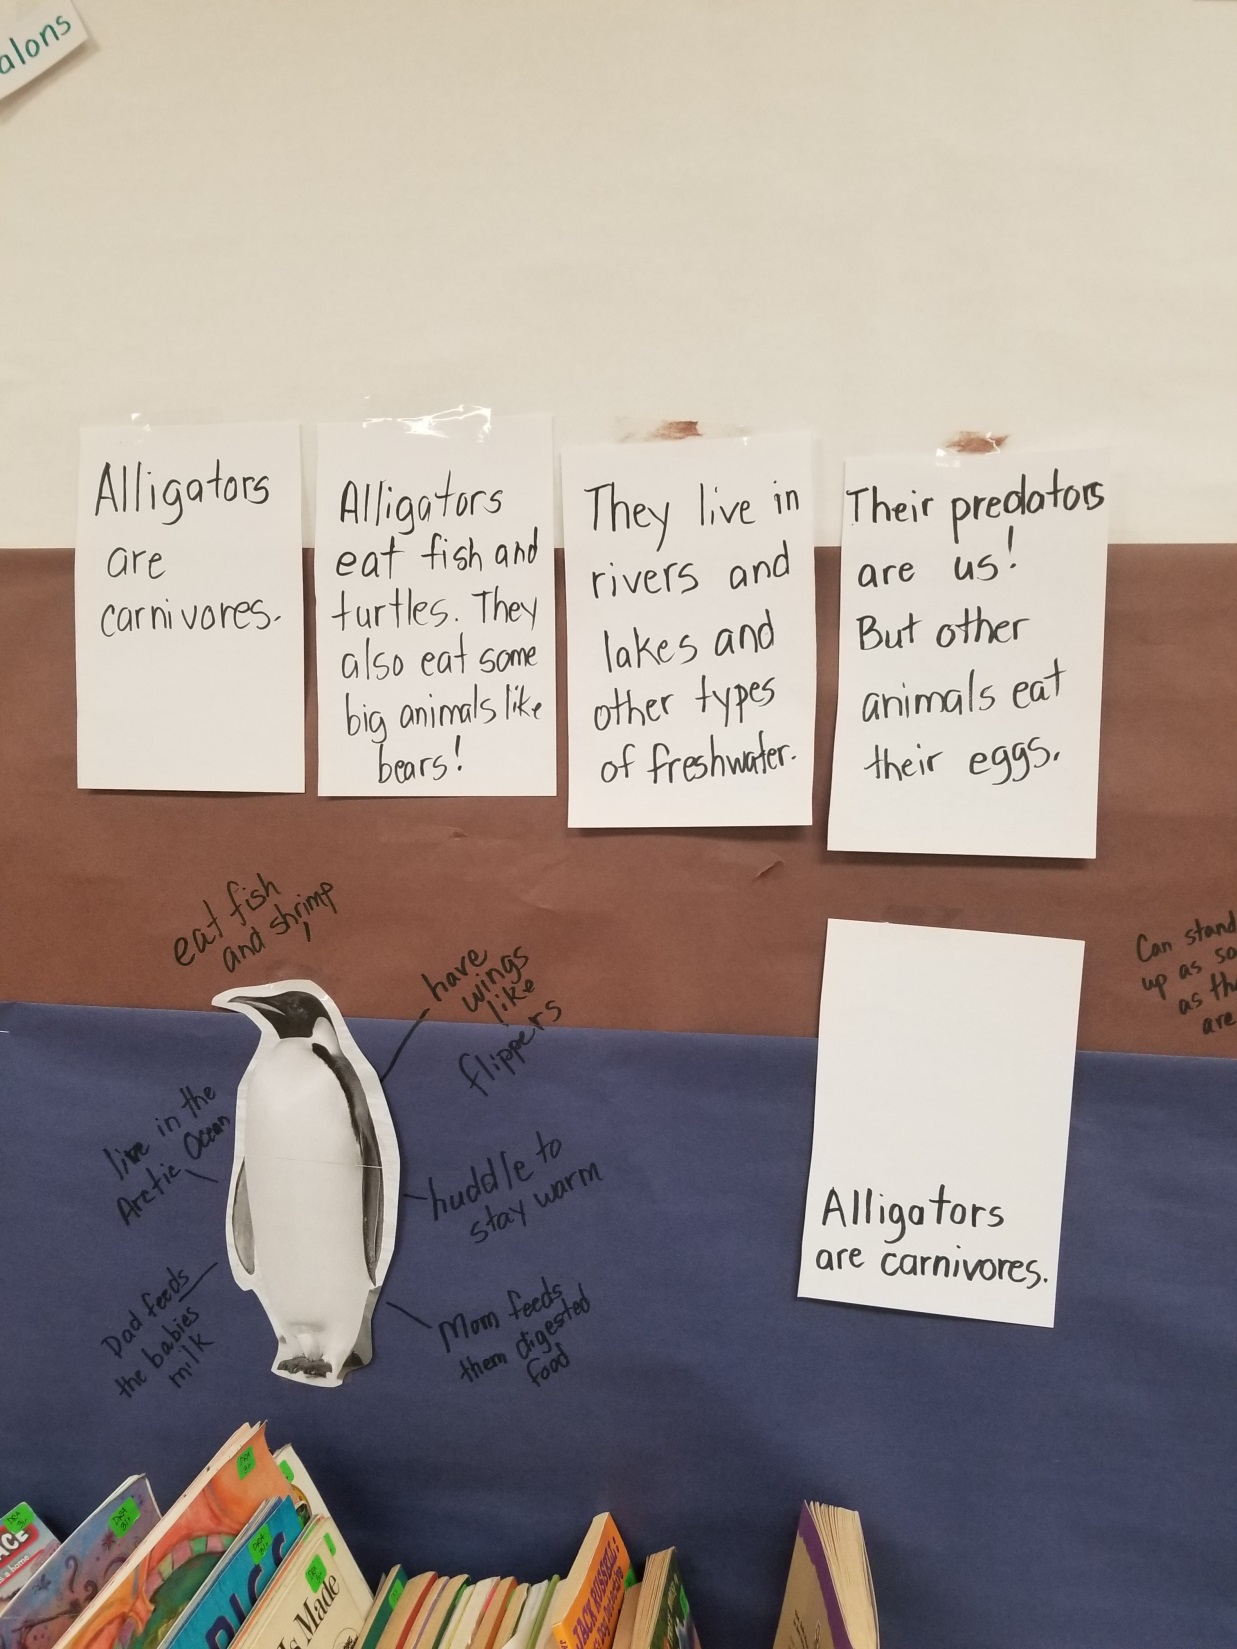 alons
Alligators
are
carnivores.
Alligators
eat fish and
turtles. They
also eat some
big animals like
bears!
They live in
rivers and
lakes and
other types
of freshwater.
Their predators
are us!
But other
animals eat
their eggs.
eat fish
and shrimp
have
wings
like
flippers
live in the
Arctic Ocean
huddle to
stay warm
Dad feeds
the babies
milk
Mom feeds
them digested
food
Can stand
up as so
as th
are
Alligators
are carnivores.
ACE
is Made
JACK RUSSELL: